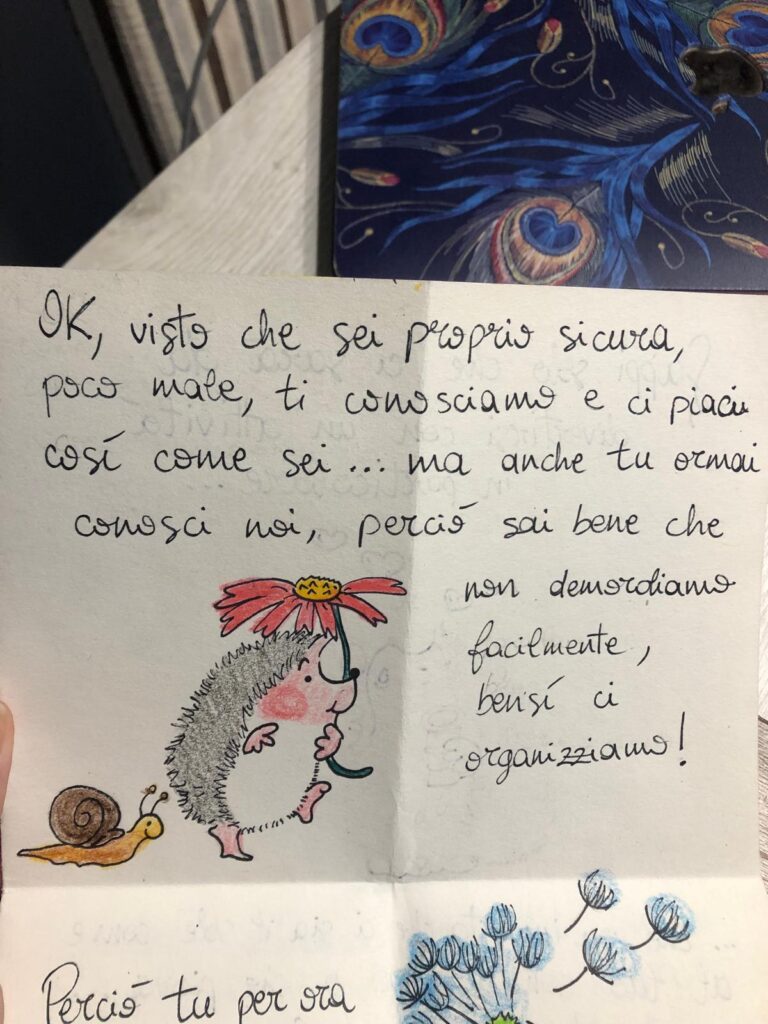 OK, visto che sei proprio sicura,
poco male, ti conosciamo e ci piaci
così come sei... ma anche tu ormai
conosci noi, perciò sai bene che
non demordiamo
facilmente,
bensí ci
organizziamo!
Perció tu per ora